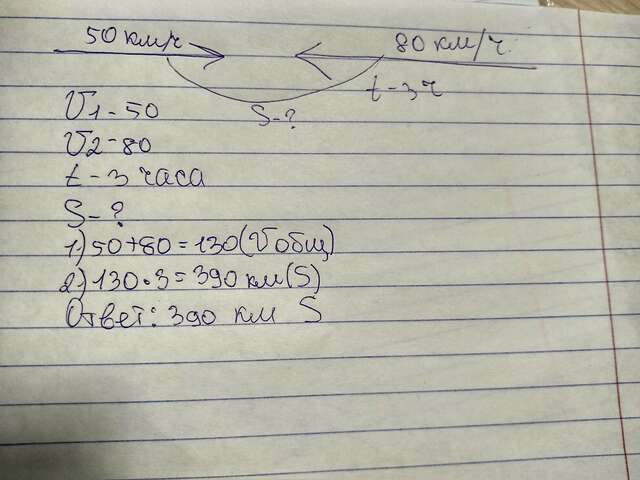 50 км/ч 80 км/ч.
t - 3 ч
S - ?
V1 - 50
V2 - 80
t - 3 часа
S - ?
1) 50 + 80 = 130 (V общ)
2) 130 • 3 = 390 км (S)
Ответ: 390 км S